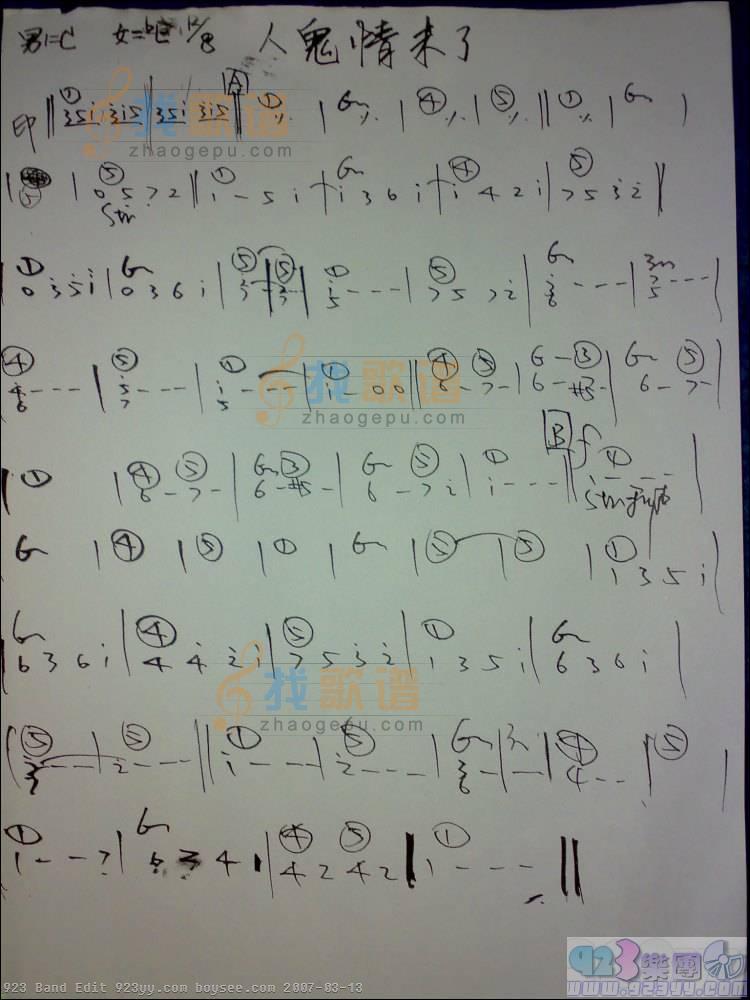 男1=C 女=bE 12/8 人鬼情未了
印 ‖ ① 35i 3i5 ‖ 35i 3i5 ‖ A ① ٪ | 6m ٪ | ④ ٪ | ⑤ ٪ ‖ ① ٪ | 6m |
找歌谱
zhaogepu.com
| ⑤ | ⑤ 0 5 7 2 ‖ ① i - 5 i | 6m i 3 6 i | ④ i 4 2 i | ⑤ 7 5 3 2 ‖
Str
| ① 0 3 5 i | 6m 0 3 6 i | ⑤ | ⑤ | ① 5 - - - | ⑤ 7 5 7 2 | 6m - - - | 3m 5 - - - |
④ 4 6 - - - | ⑤ 5 7 - - - | ① i 5 - - - | ① i - 0 0 ‖ ④ ⑤ 6 - 7 - | 6 - ③ 6 - #5 - | 6m ⑤ 6 - 7 - |
找歌谱
zhaogepu.com
| ① | ④ ⑤ 6 - 7 - | 6m ③ 6 - #5 - | 6m ⑤ 6 - 7 2 | ① i - - - ‖ B f ① i - - - |
Str
6m | ④ | ⑤ | ① | 6m | ⑤ | ⑤ | ① 1 3 5 i |
6m 6 3 6 i | ④ 4 4 2 i | ⑤ 7 5 3 2 | ① 1 3 5 i | 6m 6 3 6 i |
找歌谱
zhaogepu.com
⑤ 3 - - - | ⑤ 2 - - - ‖ ① i - - - | ⑤ 2 - - - | 6m 3 6 - | - - | ④ 4 - - - | ⑤ |
① 1 - - 7 | 6m 6 3 4 1 | ④ ⑤ 4 2 4 2 | ① 1 - - - ‖
923樂團
www.923yy.com
923 Band Edit 923yy.com boysee.com 2007-03-13